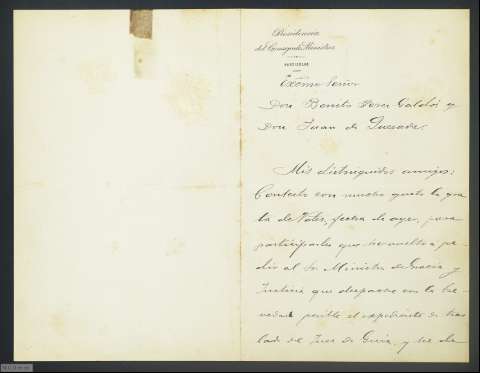 Presidencia
del Consejo de Ministros
Excmo Señor
Don Benito Perez Galdós y
Don Juan de Quesada.
Mis distinguidos amigos:
Contesto con mucho gusto la gra
ta de Vdes, fecha de ayer, para
participarles que he vuelto a pe-
dir al Sr Ministro de Gracia y
Justicia que despache con la bre-
vedad posible el expediente de tras
lado del Juez de Guía, y me da